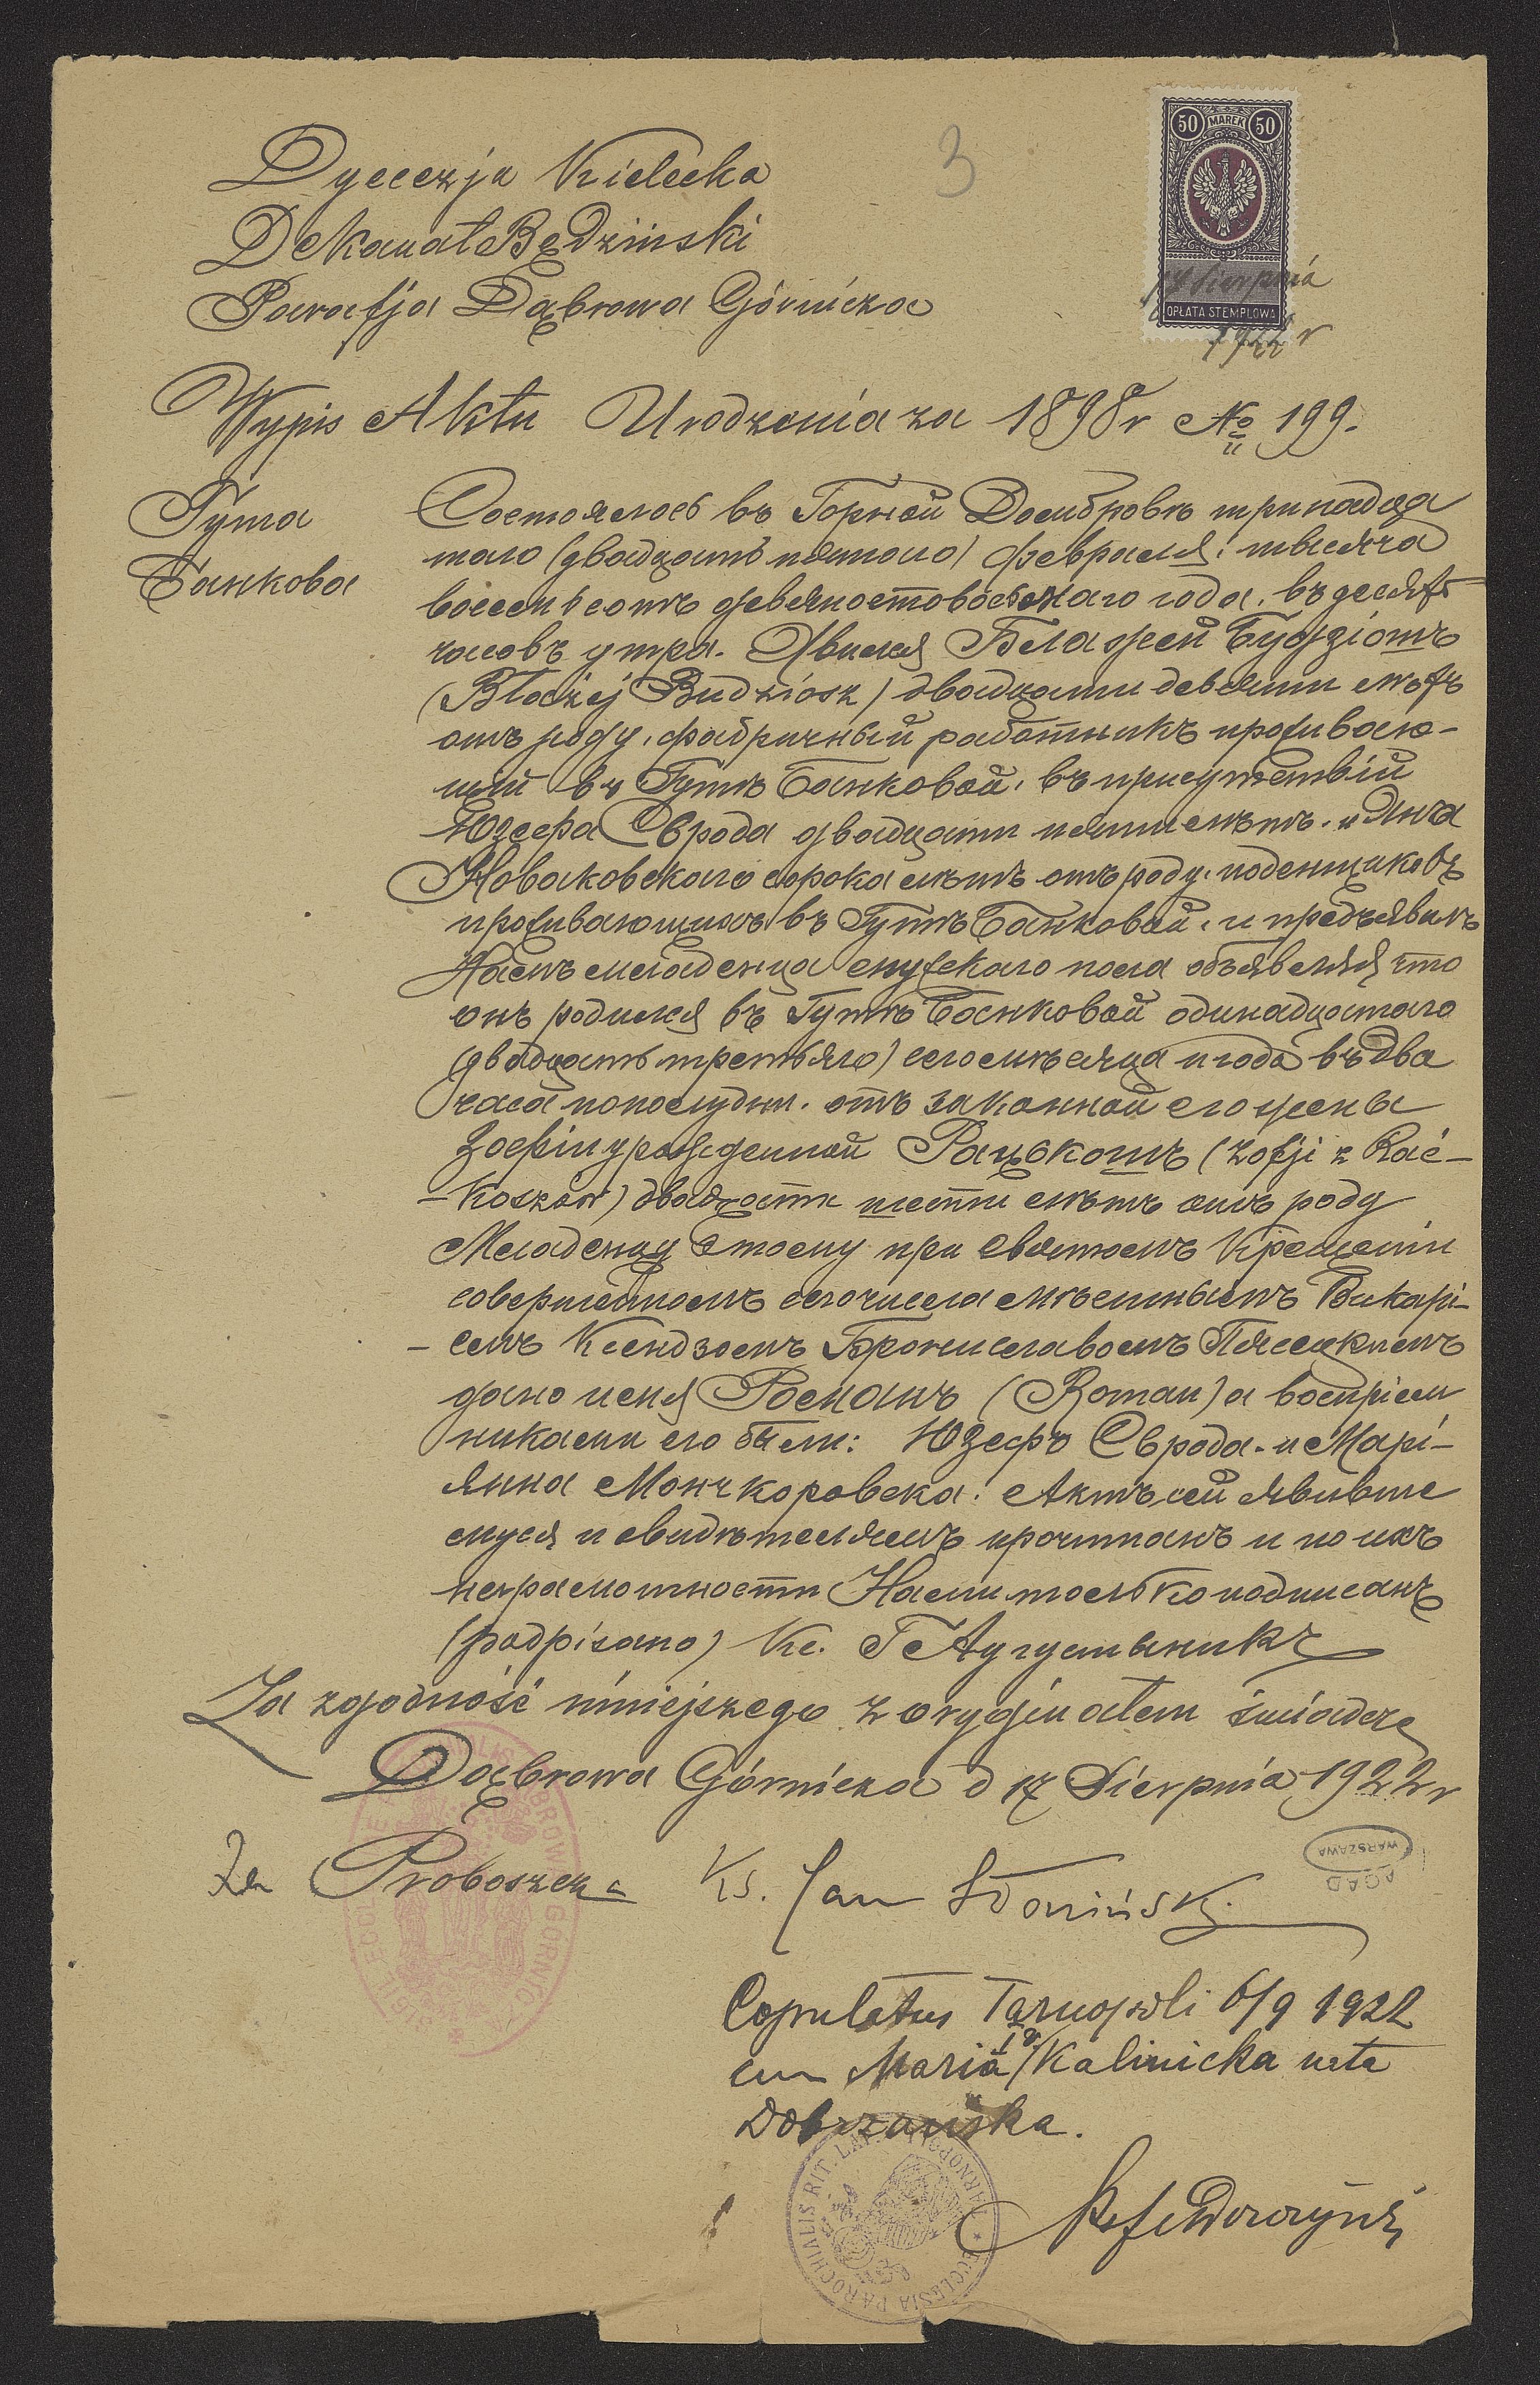 3
50 MAREK 50
14 Sierpnia
OPŁATA STEMPLOWA
1922 r
Dyecezja Kielecka
Dekanat Będziński
Parafja Dąbrowa Górnicza
Wypis Aktu Urodzenia za 1898 r № 199.
Гута
Банкова
Состоялось въ Горной Домбровѣ тринадца
таго (двадцать пятаго) февраля, тысяча
восемьсотъ девяностовосьмаго года, въ десять
часовъ утра. Явился Блажей Будзіошъ
(Błażej Budziosz) двадцати девяти лѣтъ
отъ роду, фабричный работникъ проживаю-
щій въ Гутѣ Банковой, въ присутствіи
Юзефа Сврода двадцати пяти лѣтъ, и Яна
Новаковскаго сорока лѣтъ отъ роду, поденщиковъ
проживающихъ въ Гутѣ Банковой, и предъявилъ
Намъ младенца мужскаго пола объявляя что
онъ родился въ Гутѣ Банковой одинадцатаго
(двадцать третьяго) сего мѣсяца и года въ два
часа пополудни, отъ законной его жены
Зофіи урожденной Рацькошъ (Zofji z Rać-
-koszów) двадцати шести лѣтъ отъ роду
Младенцу этому при Святомъ Крещеніи
совершенномъ сего числа мѣстнымъ Викарі-
-емъ Ксендзомъ Брониславомъ Пясецкимъ
дано имя Романъ (Roman) а воспріем
никами его были: Юзефъ Сврода и Марі-
янна Мончкоровска. Актъ сей явивше
муся и свидѣтелямъ прочитанъ и по ихъ
неграмотности Нами только подписанъ
(podpisano) Кс. Г Аугустыникъ
Za zgodność niniejszego z oryginałem świadczę
Dąbrowa Górnicza d 17 Sierpnia 1922 r
Za Proboszcza Ks. Jan
AGAD
WARSZAWA
Copulatus Tarnopoli 6/9 1922
cum Maria Kalinicka nata
Dobrzańska.
ECCLESIA PAROCHIALIS RIT. LAT.